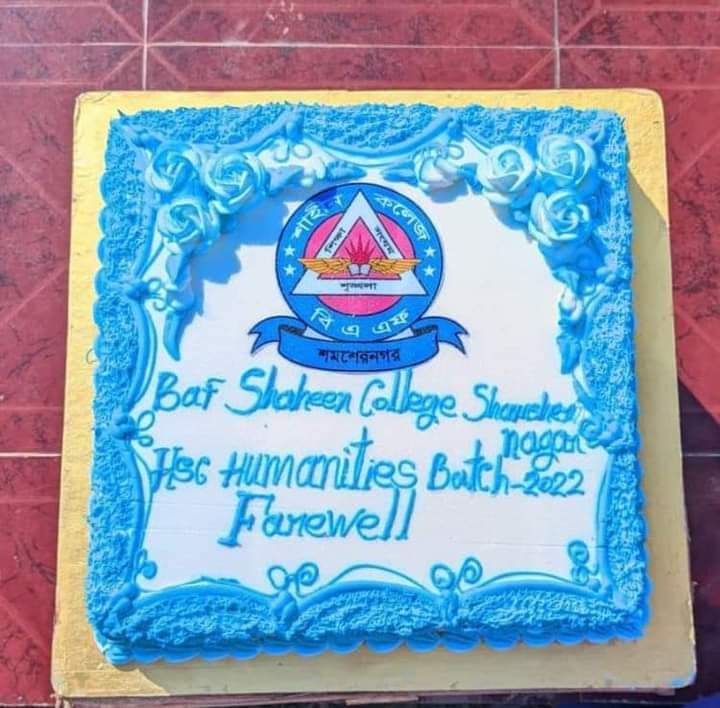 শাহীন কলেজ
শিক্ষা সংযম
শৃঙ্খলা
বি এ এফ
শমশেরনগর
Baf Shaheen College Shamsher
nagar
Hsc Humanities Batch-2022
Farewell